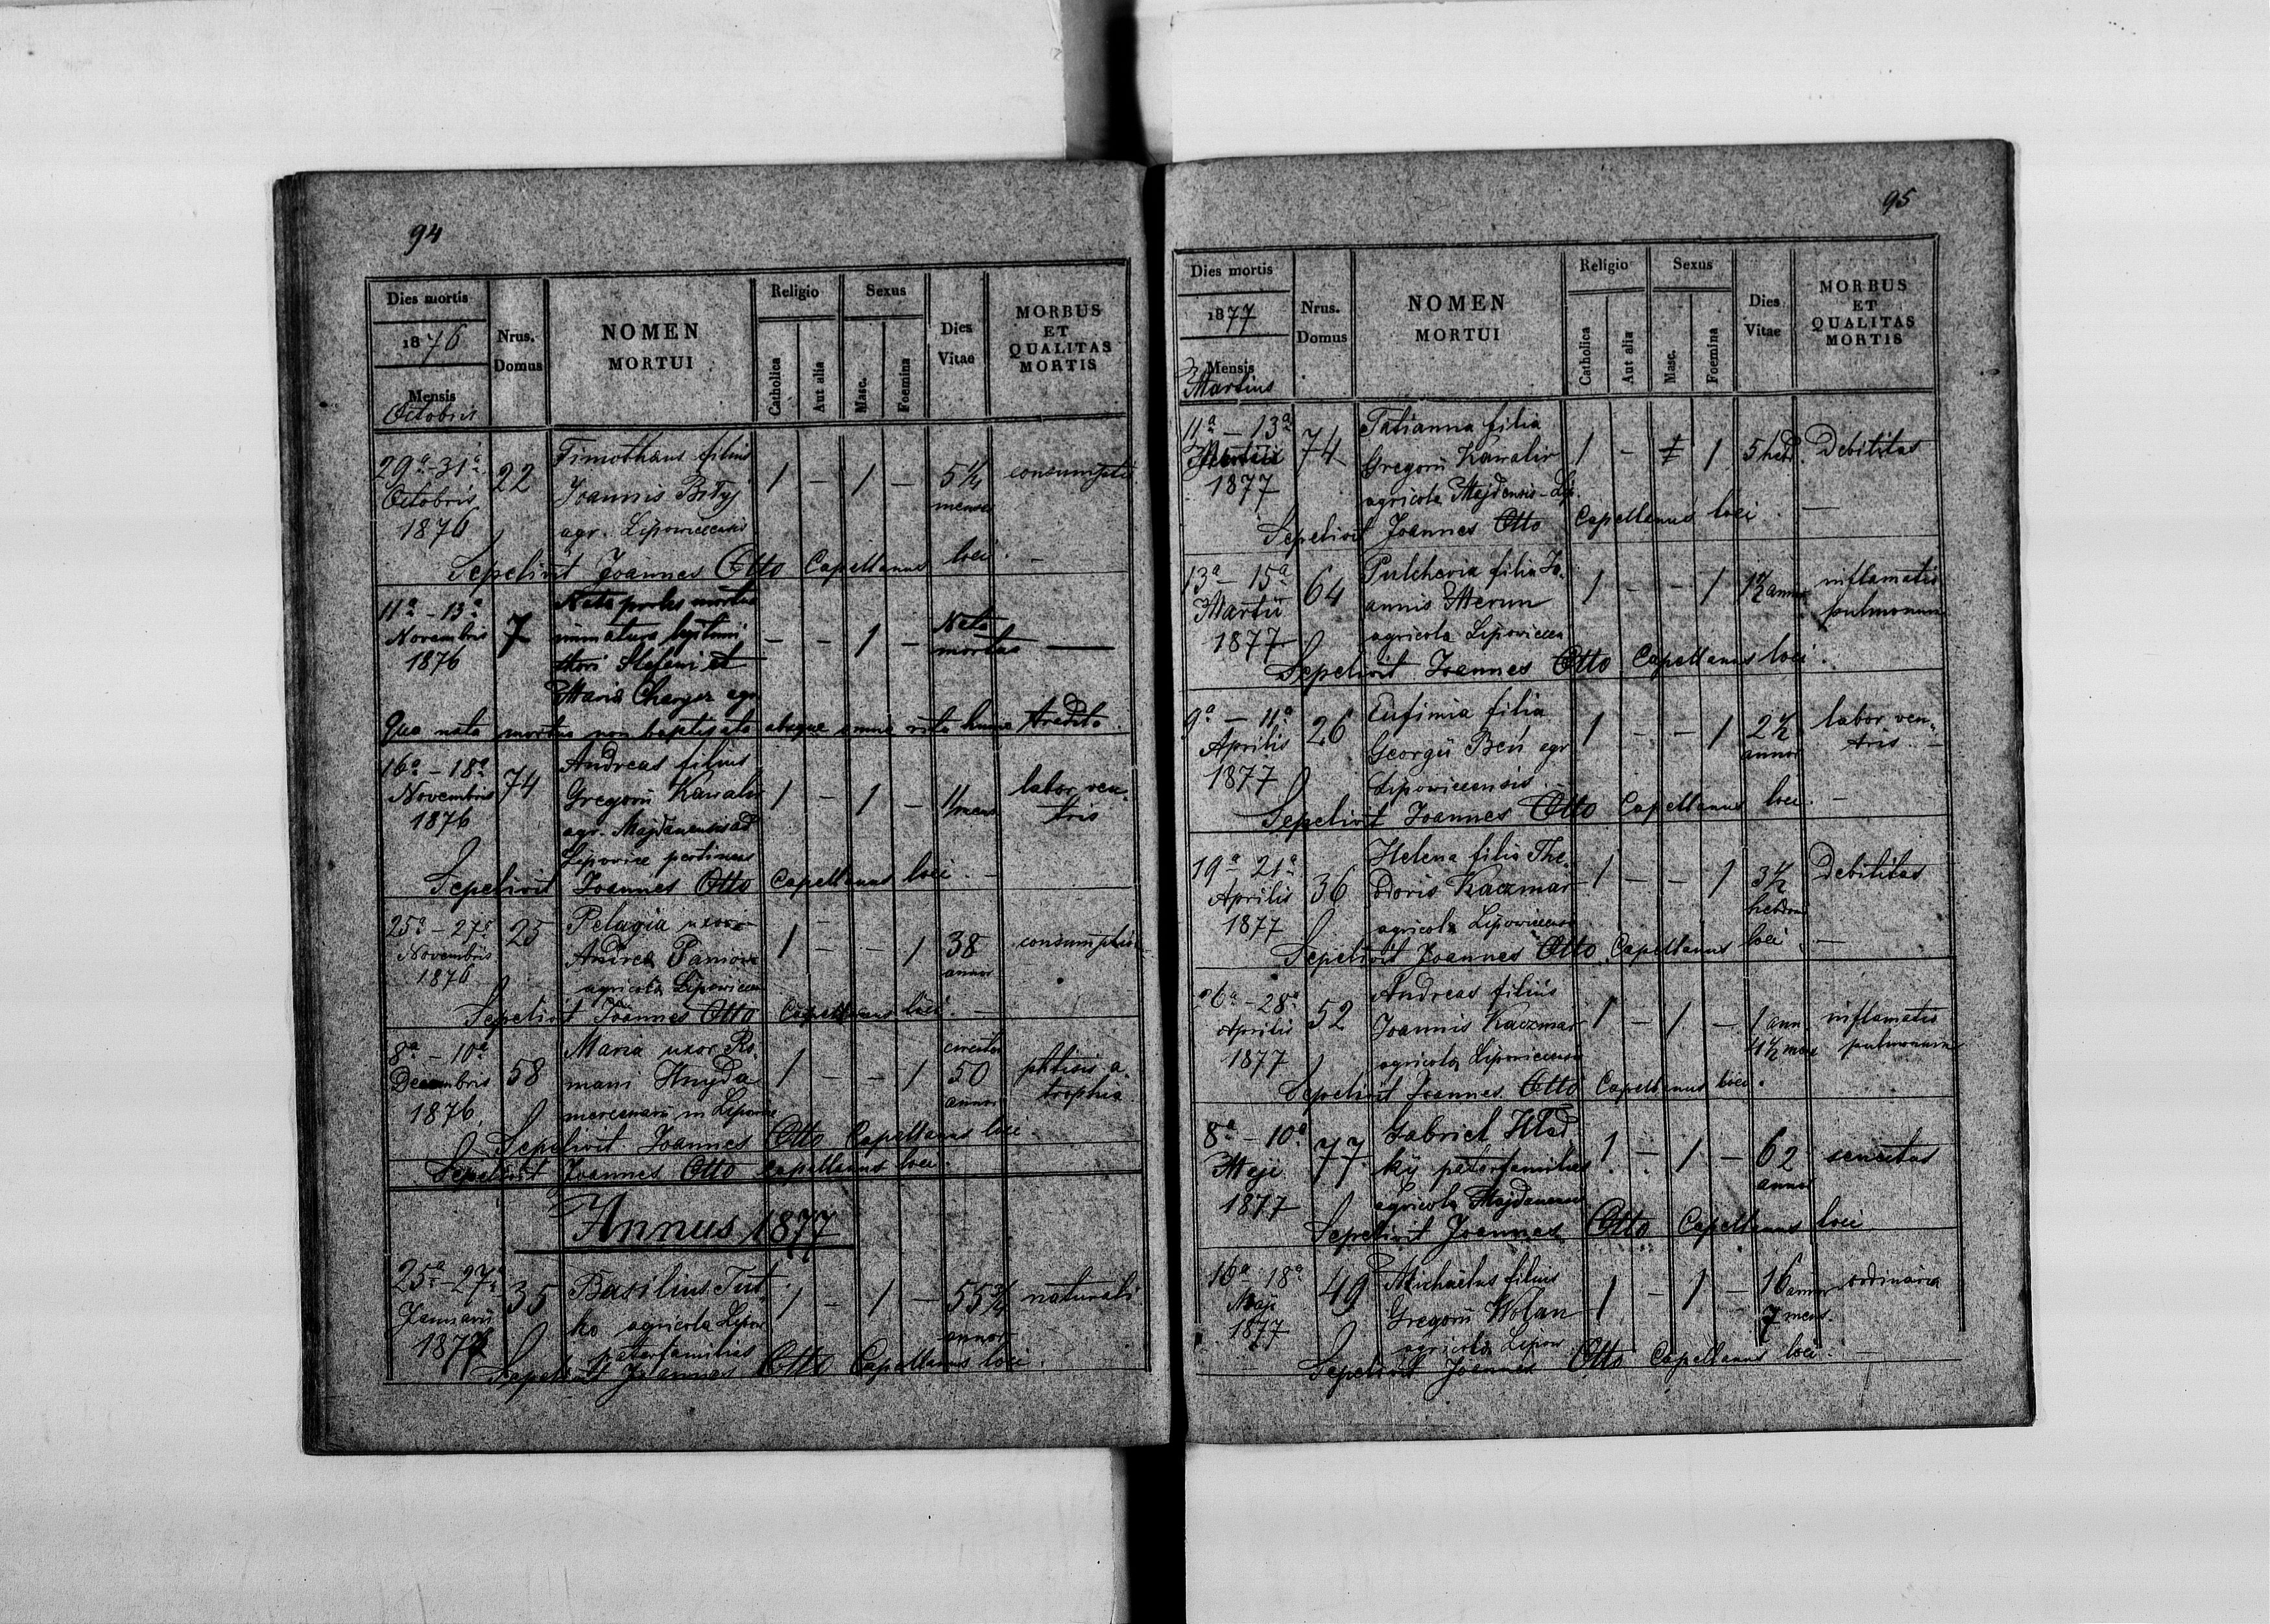 94
Dies mortis
1876
Mensis
Octobris
Nrus.
Domus
NOMEN
MORTUI
Religio
Catholica
Aut alia
Sexus
Masc.
Foemina
Dies
Vitae
MORBUS
ET
QUALITAS
MORTIS
29a-31a
Octobris
1876
22
Timotheus filius
Joannis
agr. Lipoviecensis
1 - 1 -
5 1/4
menses
Sepelivit Joannes Otto Capellanus loci. -
11a - 13a
Novembris
1876
7
Nata proles mortua
immatura
Stefani et
Maria agr.
- - 1 -
Nata
mortua
Qua nata mortua non baptisata absque omni ritu humo tradita.
16a - 18a
Novembris
1876
74
Andreas filius
Gregorii Kawalir
agr. Majdanensis ad
Lipovice pertinens
1 - 1 -
11 mens
labor ven-
tris
Sepelivit Joannes Otto Capellanus loci. -
25a - 27a
Novembris
1876
25
Pelagia uxor
Andrea
agricola
1 - - 1
38
annor
Sepelivit Joannes Otto Capellanus loci. -
8a - 10a
Decembris
1876.
58
Maria uxor Ro-
mani Hnyda
mercenarii in
1 - - 1
circiter
50
annor
phtisis a-
trophia
Sepelivit Joannes Otto Capellanus loci.
Sepelivit Joannes Otto Capellanus loci.
Annus 1877
25a-27a
Januarii
1877
35
Basilius Tut-
ko agricola Lipov
paterfamilias
1 - 1 -
55 3/4
annor
naturali
Sepelivit Joannes Otto Capellanus loci.
95
Dies mortis
1877
Mensis
Martius
Nrus.
Domus
NOMEN
MORTUI
Religio
Catholica
Aut alia
Sexus
Masc.
Foemina
Dies
Vitae
MORBUS
ET
QUALITAS
MORTIS
11a - 13a
Martii
1877
74
Tatianna filia
Gregorii Kawalir
agricola Majdensis-Lip.
1 - 1
5 hebd.
Debilitas
Sepelivit Joannes Otto Capellanus loci. -
13a - 15a
Martii
1877
64
Pulcheria filia Jo-
annis Merun
agricola
1 - - 1
1 1/2 annor
inflamatio
pulmonum
Sepelivit Joannes Otto Capellanus loci.
9a - 11a
Aprilis
1877
26
Eufimia filia
Georgii Beń agr
Lipoviecensis
1 - - 1
2 1/2
annor
labor ven-
tris. -
Sepelivit Joannes Otto Capellanus loci. -
19a - 21a
Aprilis
1877
36
Helena filia The-
odoris Kaczmar
agricola Lipoviecensis
1 - - 1
3 1/2
hebdom
Debilitas
Sepelivit Joannes Otto Capellanus loci. -
26a - 28a
Aprilis
1877
52
Andreas filius
Joannis Kaczmar
agricola Lipoviecensis
1 - 1 -
1 ann.
4 1/2 mens
inflamatio
pulmonum
Sepelivit Joannes Otto Capellanus loci.
8a - 10a
Maji
1877
77
Gabriel Hlad-
kij paterfamilias
agricola
1 - 1 -
62
annor
senectus
Sepelivit Joannes Otto Capellanus loci
16a 18a
Maji
1877
49
Michaelus filius
Gregorii Wolan
agricola Lipov
1 - 1 -
16 annor
7 mens.
ordinaria
Sepelivit Joannes Otto Capellanus loci. -